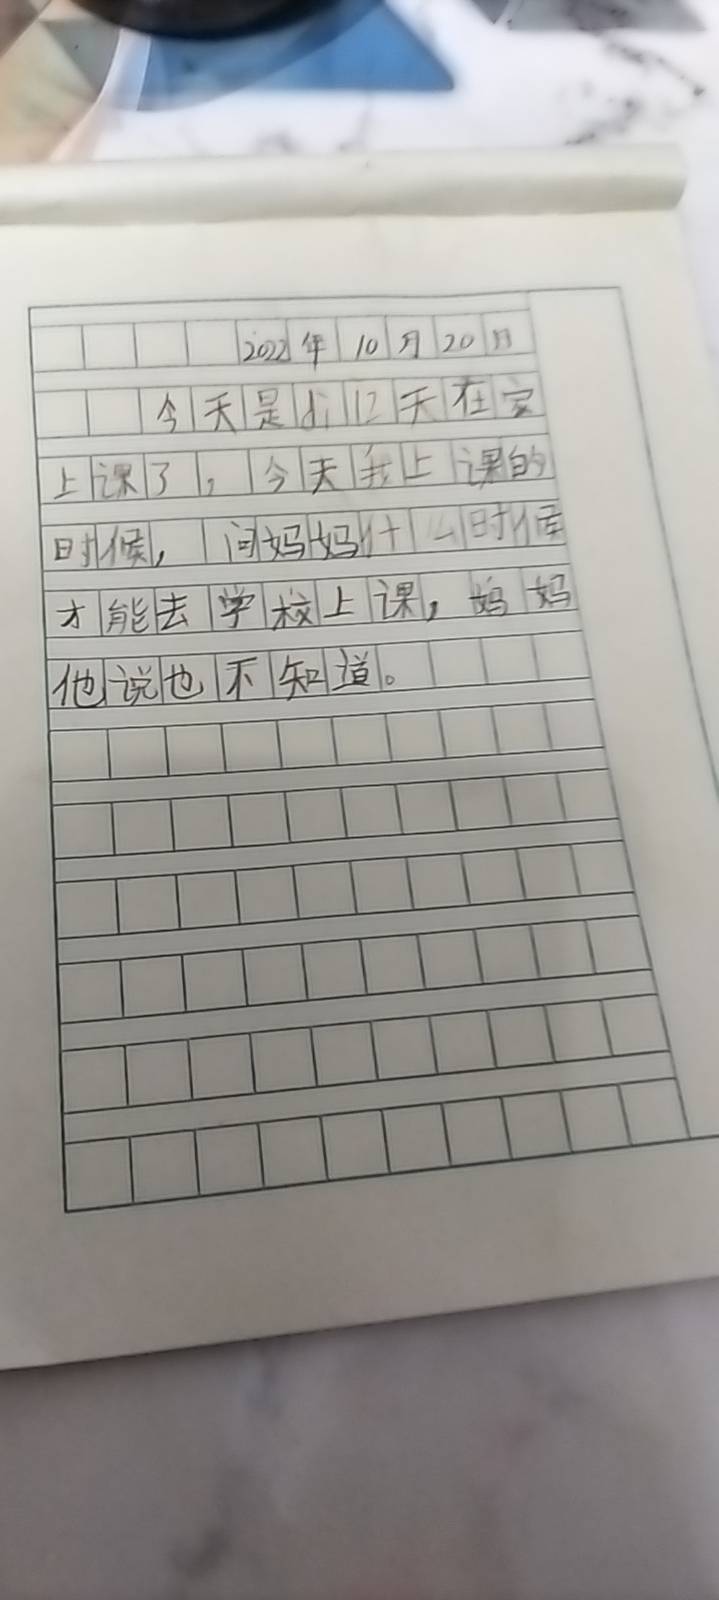 2022年10月20日
今天是di12天在家
上课了，今天我上课的
时候，问妈妈什么时候
才能去学校上课，妈妈
他说也不知道。